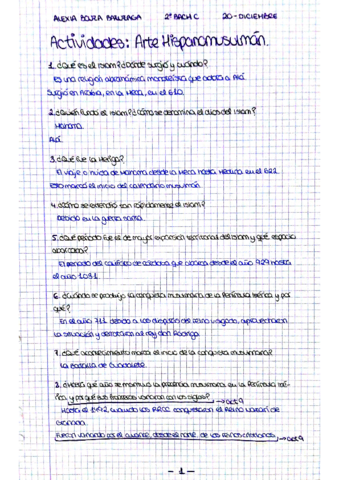 ALEXIA BOJRA BARURAGA 2º BACH C 20-DICIEMBRE
Actividades: Arte Hispanomusulmán.
1. ¿Qué es el islam? ¿Dónde surgió y cuándo?
Es una religión abrahámica monoteísta que adora a Alá.
Surgió en Arabia, en la Meca, en el 610.
2. ¿Quién fundó el islam? ¿Cómo se denomina el dios del islam?
Mahoma.
Alá.
3. ¿Qué fue la Hégira?
El viaje o huida de Mahoma desde la Meca hasta Medina, en el 622.
Esto marcó el inicio del calendario musulmán.
4. ¿Cómo se extendió tan rápidamente el islam?
Debido a la guerra santa.
5. ¿Qué periodo fue el de mayor expansión territorial del islam y qué espacio
abarcaba?
El periodo del califato de córdoba que abarca desde el año 929 hasta
el año 1031.
6. ¿Cuándo se produjo la conquista musulmana de la Península Ibérica y por
qué?
En el año 711 debido a los del reino visigodo, aprovecharon
la situación y derrotaron al rey don Rodrigo.
7. ¿Qué acontecimiento marca el inicio de la conquista musulmana?
La batalla de Guadalete.
8. ¿Hasta qué año se mantuvo la presencia musulmana en la Península Ibé-
rica y por qué sus fronteras variaron con los siglos? → act 9
Hasta el 1492, cuando los RRCC conquistaron el Reino nazarí de
Granada.
Fueron variando por el avance, desde el norte de los reinos cristianos, → act 9
- 1 -